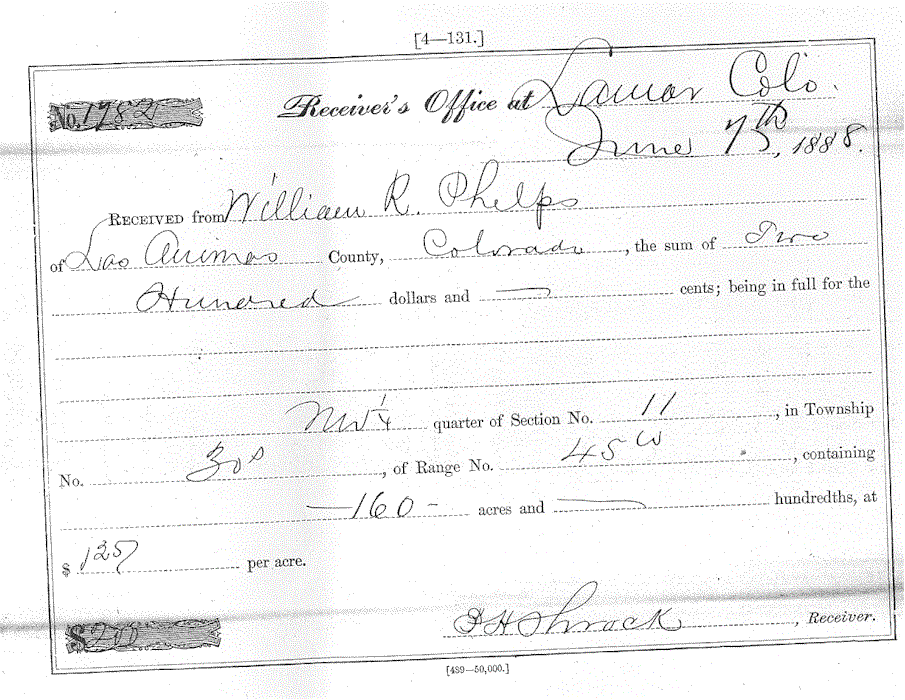 [4—131.]
No. 1782 Receiver's Office at Lamar Colo.
June 7th, 1888.
RECEIVED from William R. Phelps
of Las Animas County, Colorado, the sum of Two
Hundred dollars and — cents; being in full for the
NW 1/4 quarter of Section No. 11, in Township
No. 30 s, of Range No. 45 W, containing
—160— acres and — hundredths, at
$ 125 per acre.
$ 200 , Receiver.
[489—50,000.]